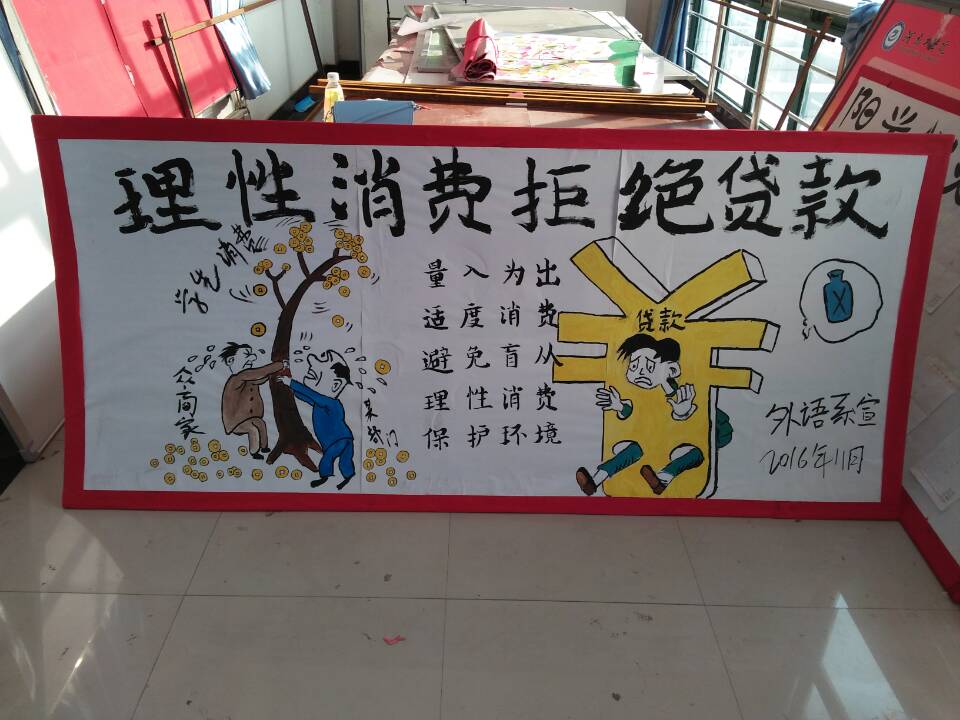 理性消费拒绝贷款
学生消费
众商家
某部门
量入为出
适度消费
避免盲从
理性消费
保护环境
贷款
X
外语系宣
2016年11月
阳光